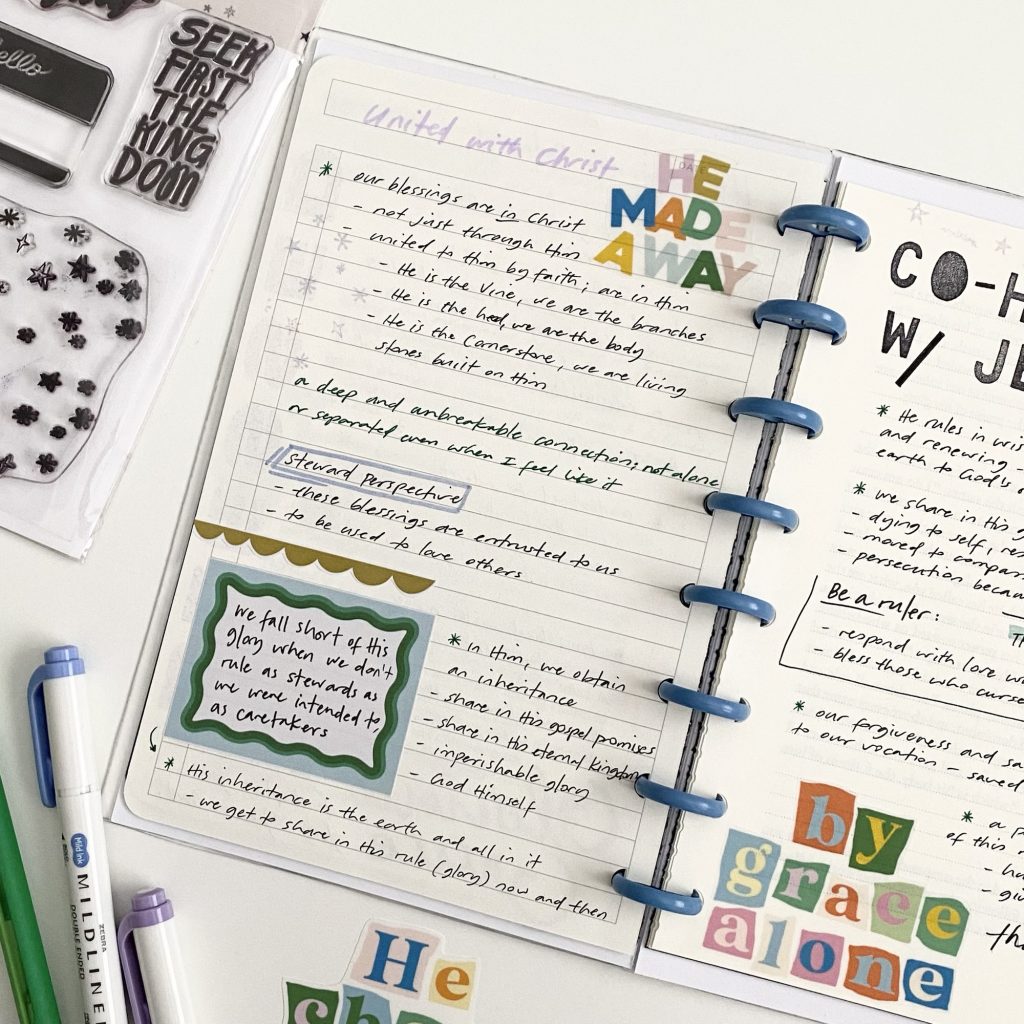 Hello
SEEK
FIRST
THE
KING
DOM
United with Christ
DATE
HE
MADE
A WAY
* our blessings are in Christ
- not just through Him
- united to Him by faith; are in Him
- He is the Vine, we are the branches
- He is the head, we are the body
- He is the Cornerstone, we are living
stones built on Him
a deep and unbreakable connection; not alone
or separated even when I feel like it
Steward perspective
- these blessings are entrusted to us
- to be used to love others
We fall short of His
glory when we don't
rule as stewards as
we were intended to,
as caretakers
* in Him, we obtain
an inheritance
- share in His gospel promises
- share in His eternal Kingdom
- imperishable glory
- God Himself
* His inheritance is the earth and all in it
- we get to share in His rule (glory) now and then
CO-H
W/ JE
* He rules in wis
and renewing -
earth to God's
* we share in His g
- dying to self, res
- moved to compa
- persecution becau
Be a ruler:
- respond with love w
- bless those who curse
* our forgiveness and sa
to our vocation - saved
* a p
of this
- ha
- giv
tha
by
grace
alone
He
ch
Mild ink
MILDLINER
ZEBRA
DOUBLE ENDED